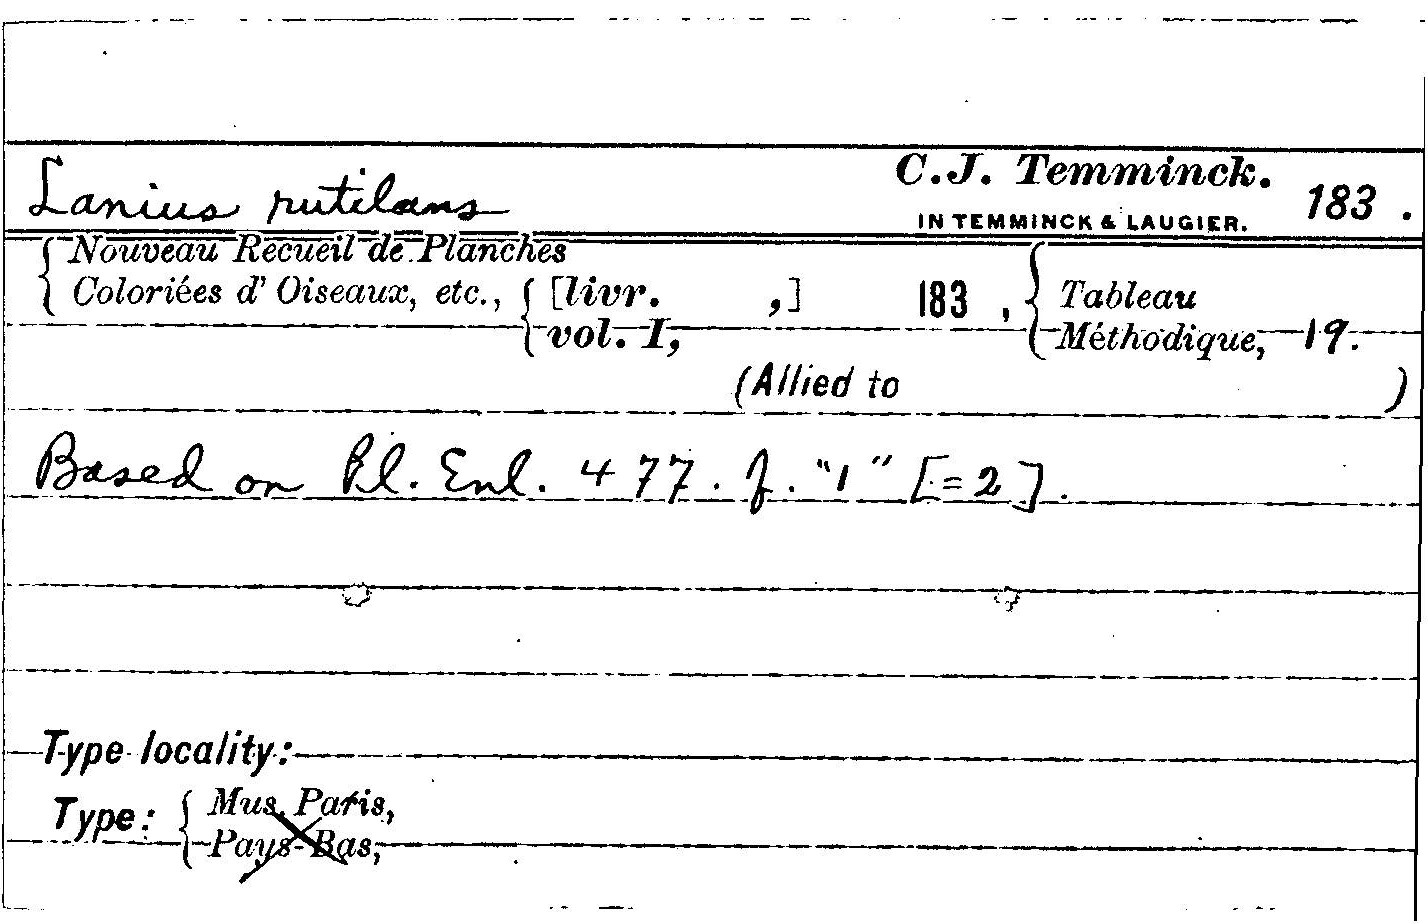 Lanius rutilans C.J. Temminck. 183.
IN TEMMINCK & LAUGIER.
{ Nouveau Recueil de Planches
Coloriées d' Oiseaux, etc., { [livr. ,] 183 , { Tableau
vol. I, Méthodique, 19.
(Allied to )
Based on Pl. Enl. 477. f. "1" [=2].
Type locality:
Type: { Mus. Paris,
Pays-Bas,